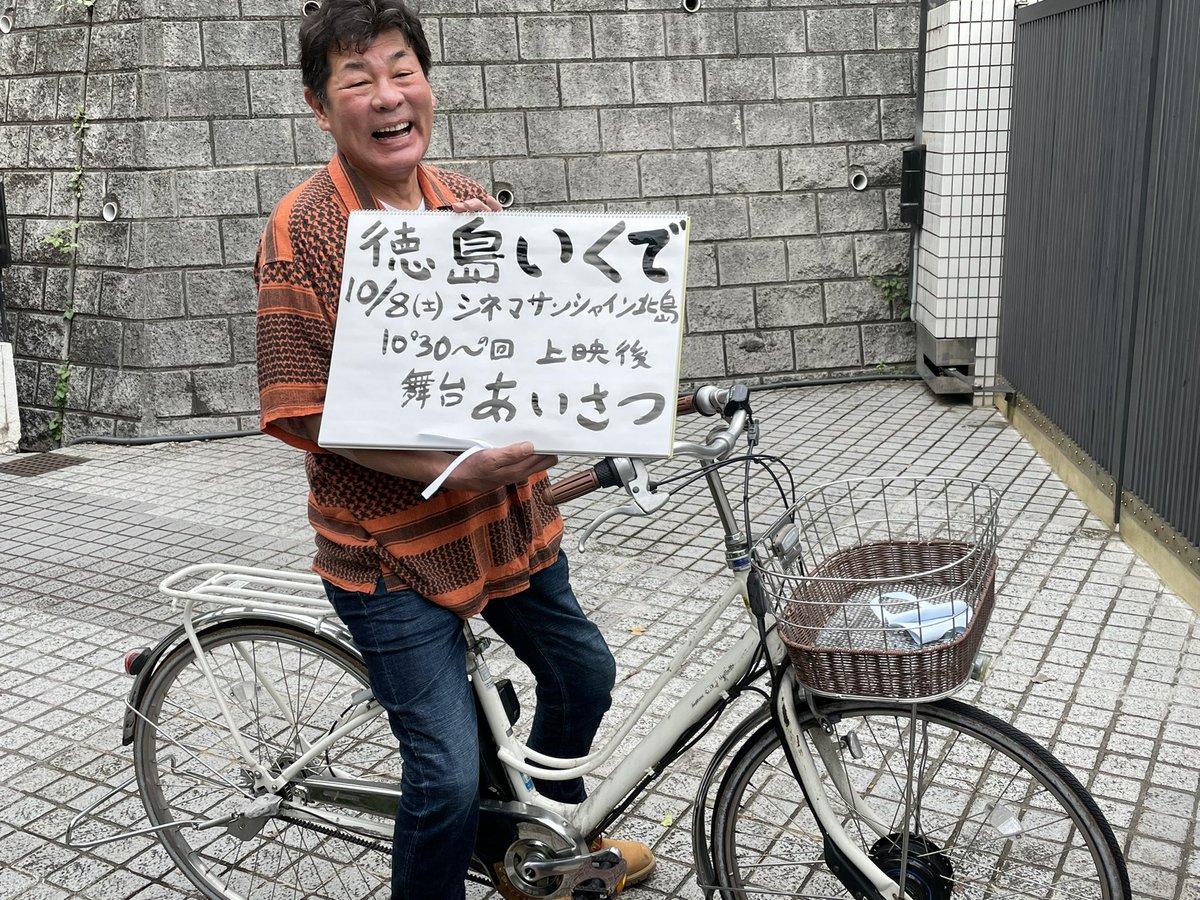 徳島いくで
10/8(土) シネマサンシャイン北島
10°30〜の回 上映後
舞台あいさつ